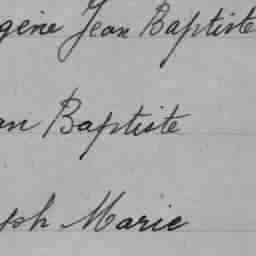 gène Jean Baptiste
an Baptiste
ph Marie